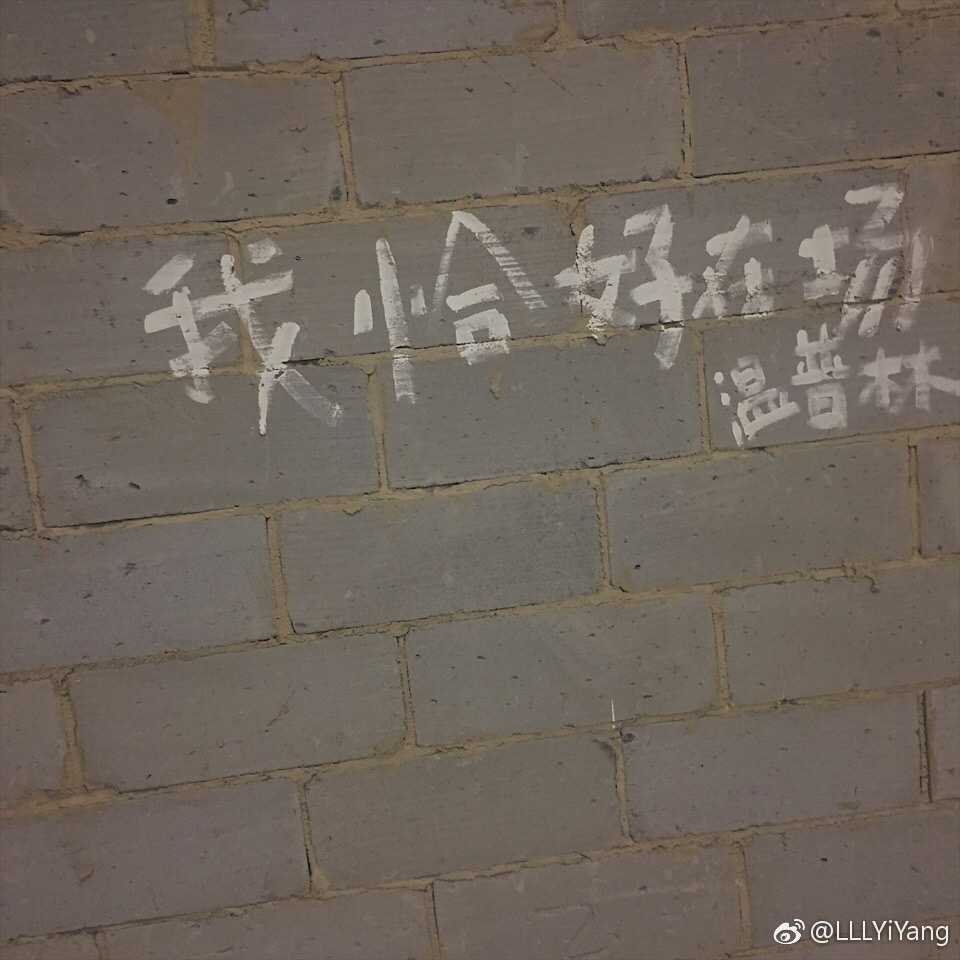 我恰好在场
温普林
@LLLYiYang